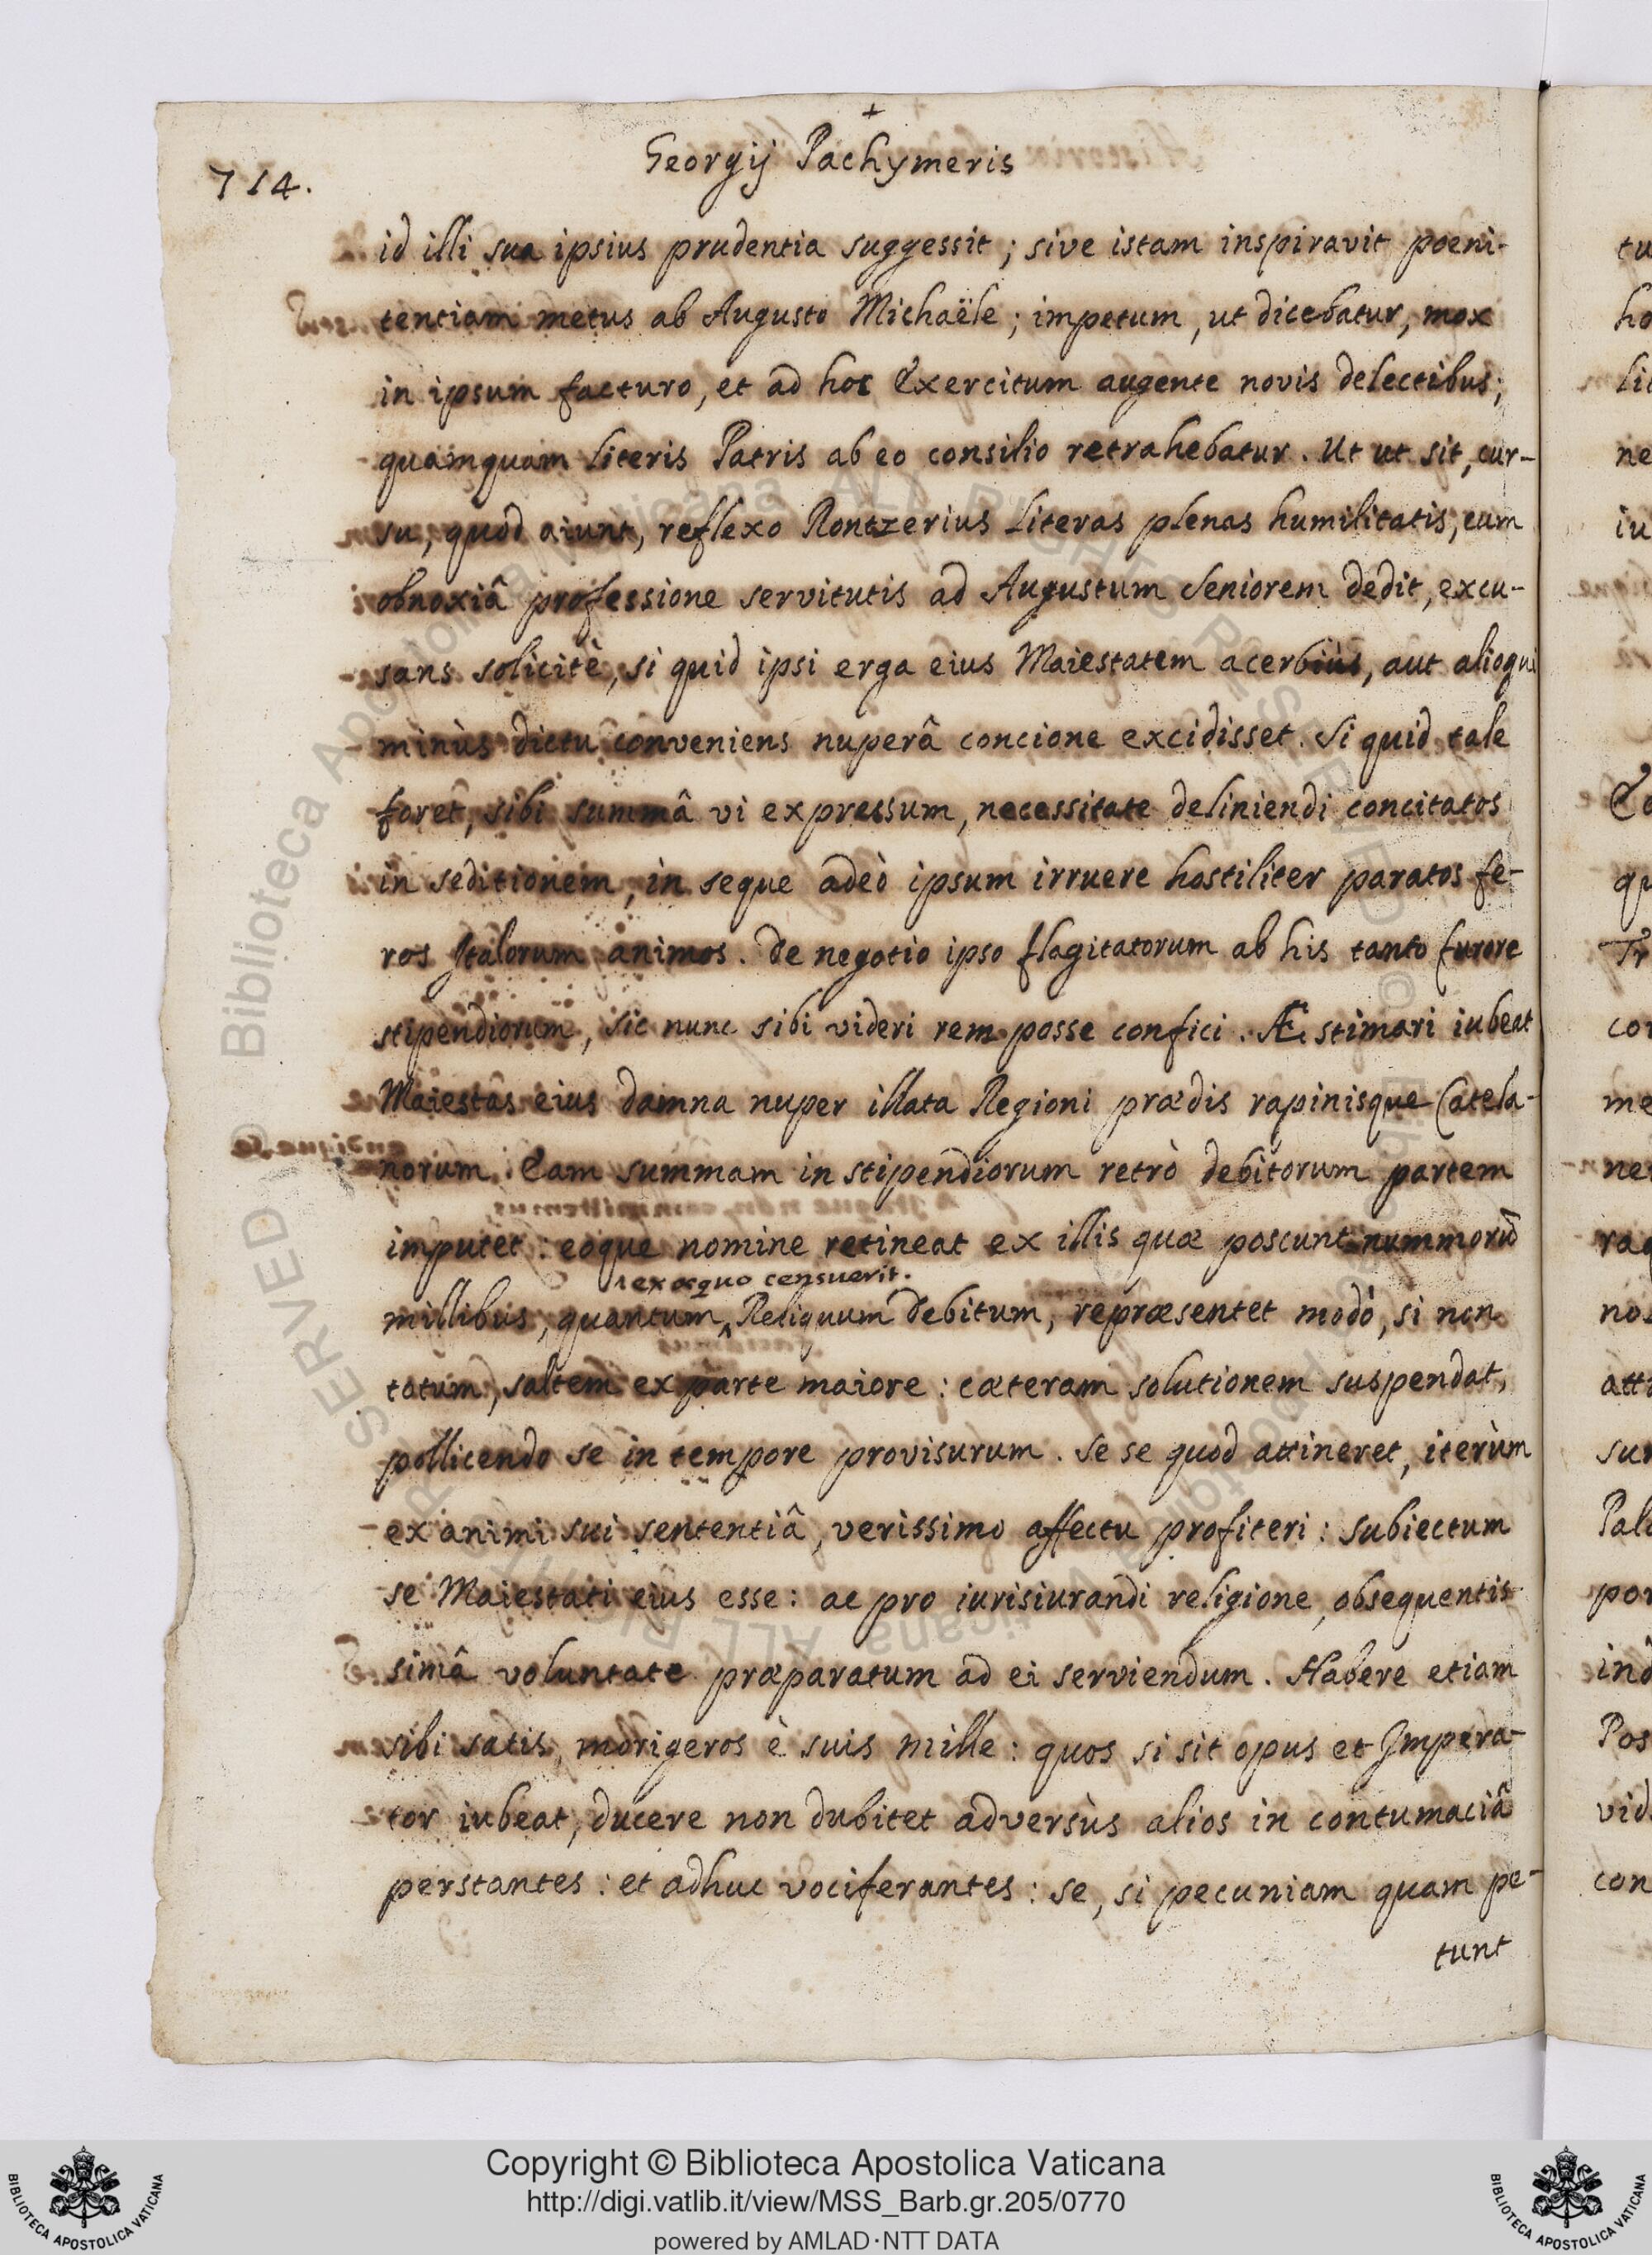 +
714.
Georgij Pachymeris
id illi sua ipsius prudentia suggessit; sive istam inspiravit poeni-
tentiam metus ab Augusto Michaële; impetum, ut dicebatur, mox
in ipsum facturo, et ad hoc Exercitum augente novis delectibus;
quamquam literis Patris ab eo consilio retrahebatur. Ut ut sit, cur-
su, quod aiunt, reflexo Rontzerius literas plenas humilitatis, cum
obnoxiâ professione servitutis ad Augustum Seniorem dedit, excu-
sans solicitè, si quid ipsi erga eius Maiestatem acerbiùs, aut alioqui
minùs dictu conveniens nuperâ concione excidisset. Si quid tale
foret, sibi summâ vi expressum, necessitate deliniendi concitatos
in seditionem, in seque adeò ipsum irruere hostiliter paratos fe-
ros Italorum animos. De negotio ipso flagitatorum ab his tanto furore
stipendiorum, sic nunc sibi videri rem posse confici. Æstimari iubeat
Maiestas eius damna nuper illata Regioni prædis rapinisque Catela-
norum. Eam summam in stipendiorum retrò debitorum partem
imputet: eoque nomine retineat ex illis quæ poscunt nummorū
^ ex æquo censuerit.
millibus, quantum ^ Reliquum debitum, repræsentet modò, si non
totum, saltem ex parte maiore: cæteram solutionem suspendat,
pollicendo se in tempore provisurum. Se se quod attineret, iterùm
ex animi sui sententiâ, verissimo affectu profiteri: subiectum
se Maiestati eius esse: ac pro iurisiurandi religione, obsequentis-
simâ voluntate præparatum ad ei serviendum. Habere etiam
sibi satis morigeros è suis mille: quos si sit opus et Impera-
tor iubeat, ducere non dubitet adversùs alios in contumaciâ
perstantes: et adhuc vociferantes: se, si pecuniam quam pe-
tunt
Copyright © Biblioteca Apostolica Vaticana
http://digi.vatlib.it/view/MSS_Barb.gr.205/0770
powered by AMLAD·NTT DATA
BIBLIOTECA APOSTOLICA VATICANA
BIBLIOTECA APOSTOLICA VATICANA